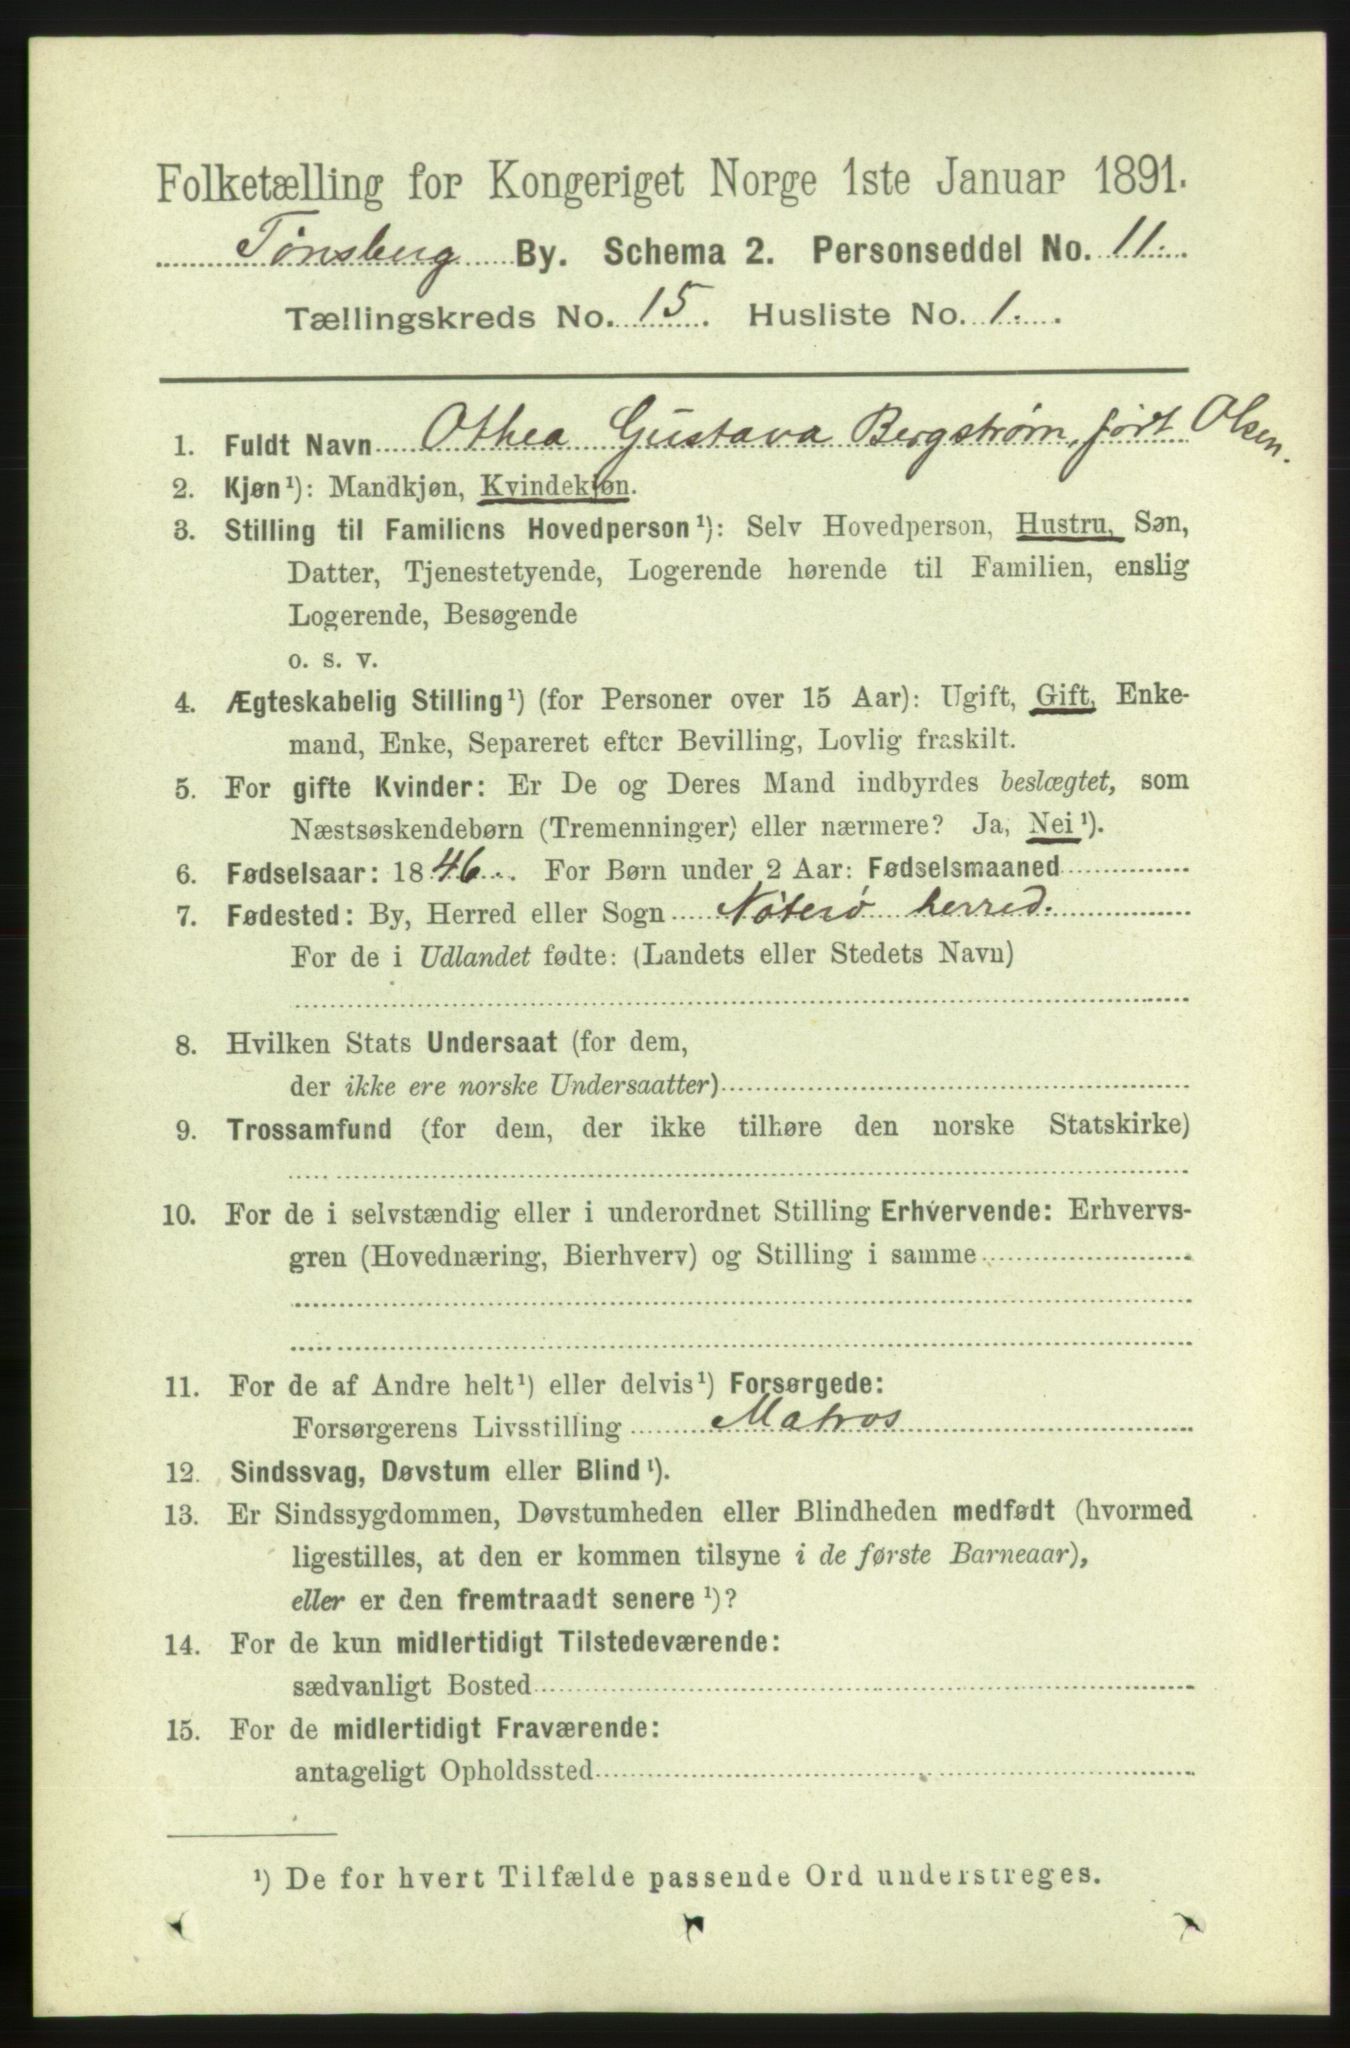 Folketælling for Kongeriget Norge 1ste Januar 1891.
Tønsberg By. Schema 2. Personseddel No. 11.
Tællingskreds No. 15. Husliste No. 1.
1. Fuldt Navn Othea Gustava Bergstrøm, født Olsen.
2. Kjøn¹): Mandkjøn, Kvindekjøn.
3. Stilling til Familiens Hovedperson¹): Selv Hovedperson, Hustru, Søn,
Datter, Tjenestetyende, Logerende hørende til Familien, enslig
Logerende, Besøgende
o. s. v.
4. Ægteskabelig Stilling¹) (for Personer over 15 Aar): Ugift, Gift, Enke-
mand, Enke, Separeret efter Bevilling, Lovlig fraskilt.
5. For gifte Kvinder: Er De og Deres Mand indbyrdes beslægtet, som
Næstsøskendebørn (Tremenninger) eller nærmere? Ja, Nei¹).
6. Fødselsaar: 1846. For Børn under 2 Aar: Fødselsmaaned
7. Fødested: By, Herred eller Sogn Nøterø herred.
For de i Udlandet fødte: (Landets eller Stedets Navn)
8. Hvilken Stats Undersaat (for dem,
der ikke ere norske Undersaatter)
9. Trossamfund (for dem, der ikke tilhøre den norske Statskirke)
10. For de i selvstændig eller i underordnet Stilling Erhvervende: Erhvervs-
gren (Hovednæring, Bierhverv) og Stilling i samme
11. For de af Andre helt¹) eller delvis¹) Forsørgede:
Forsørgerens Livsstilling Matros
12. Sindssvag, Døvstum eller Blind¹).
13. Er Sindssygdommen, Døvstumheden eller Blindheden medfødt (hvormed
ligestilles, at den er kommen tilsyne i de første Barneaar),
eller er den fremtraadt senere¹)?
14. For de kun midlertidigt Tilstedeværende:
sædvanligt Bosted
15. For de midlertidigt Fraværende:
antageligt Opholdssted
¹) De for hvert Tilfælde passende Ord understreges.